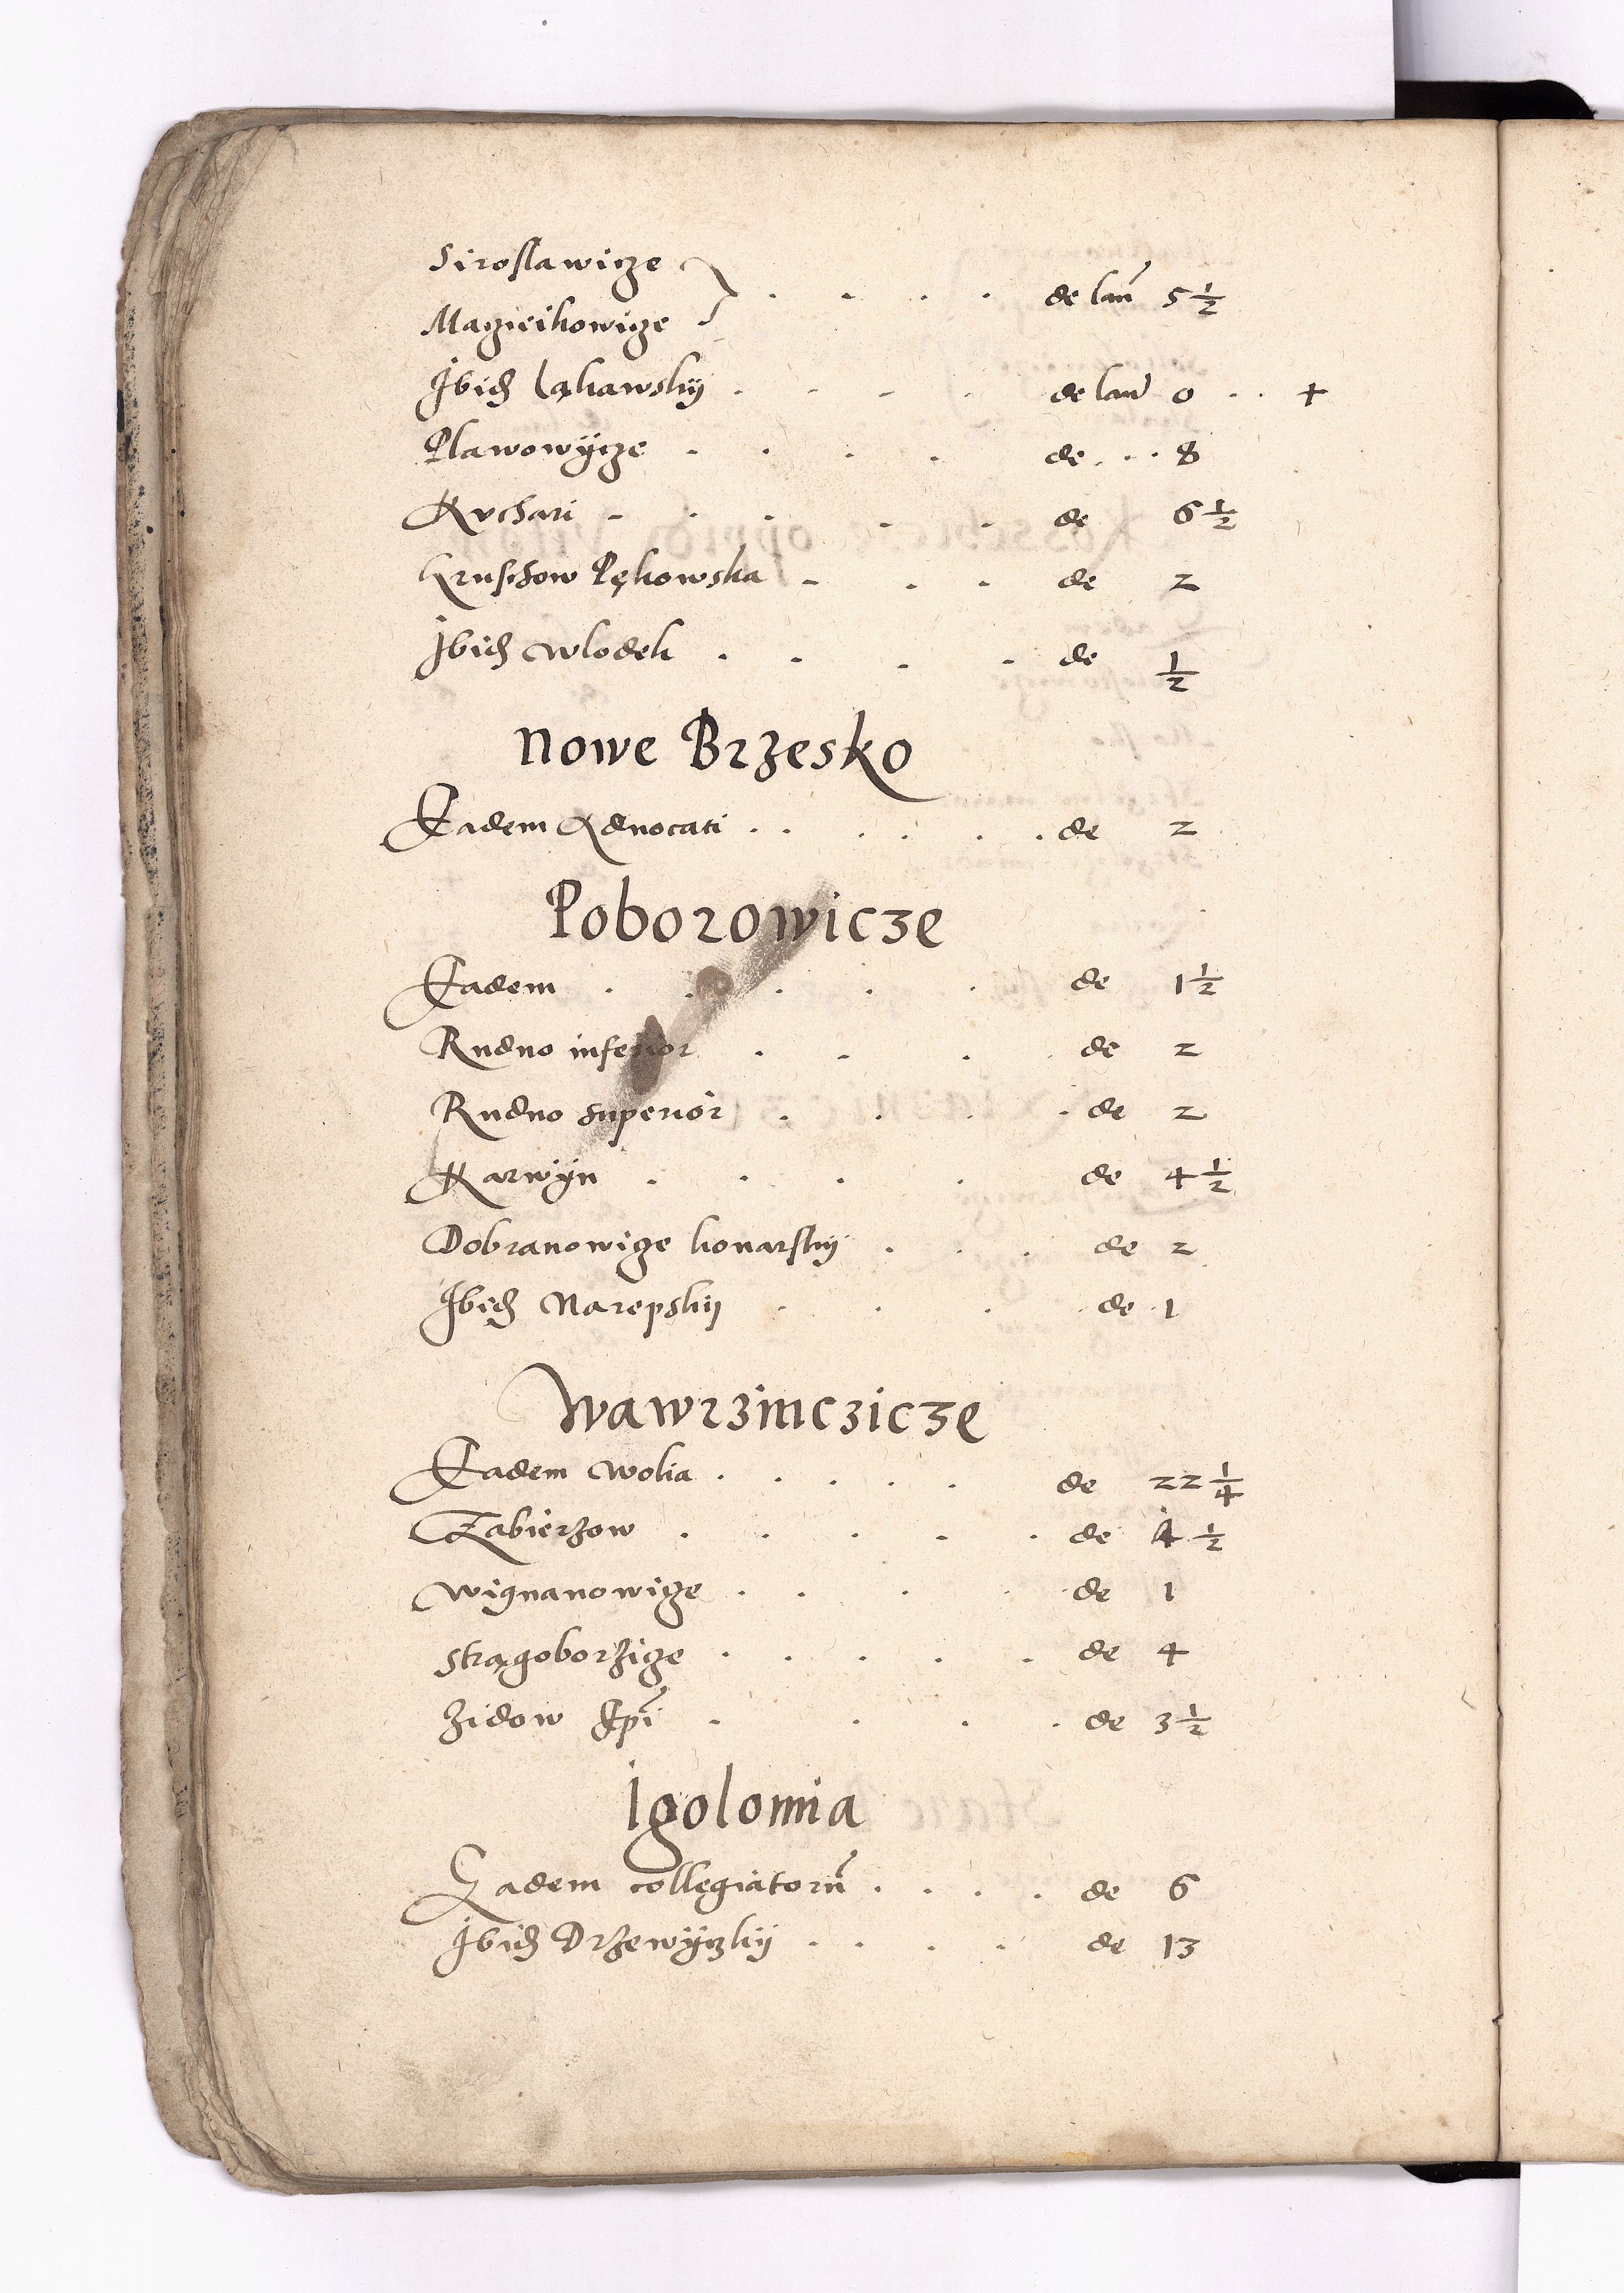 Siroslawicze
de lan̄ 5 1/2
Maczieikowicze
Ibid Ląkawskÿ . . . . de lan̄ 0 . . +
Plawowÿcze . . . . de . . . 8
Kvchari . . . . . de 6 1/2
Kruschow Pękowska . . . de 2
Ibid Wlodek . . . . de 1/2
Nowe Brzesko
Eadem Aduocati . . . . . . de 2
Poborowicze
Eadem . . . . . de 1 1/2
Rudno inferior . . . de 2
Rudno superior . . . . de 2
Karwÿn . . . . de 4 1/2
Dobranowicze konarskÿ . . . de 2
Ibid Narepskÿ . . . de 1
Wawrzinczicze
Eadem Wolia . . . . . de 22 1/4
Czabierzow . . . . . de 4 1/2
Wignanowicze . . . . de 1
Strągoborzicze . . . . . de 4
Zidow Epī . . . . de 3 1/2
Igolomia
Eadem collegiatorū . . . . de 6
Ibid Drzewÿczkÿ . . . . de 13